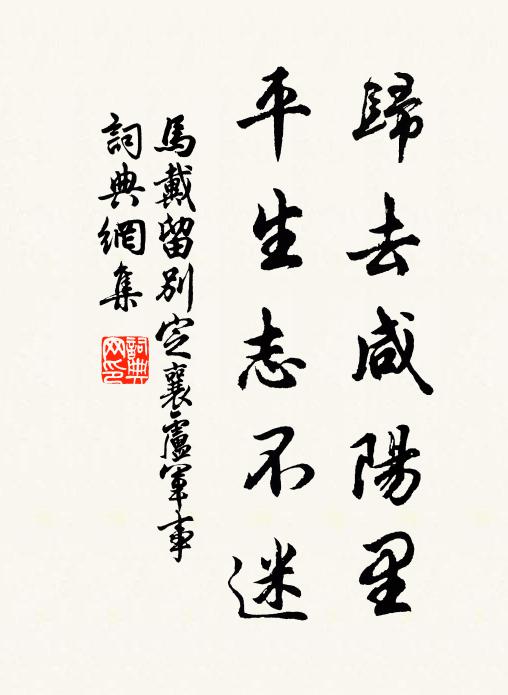 歸去咸陽里
平生志不迷
馬戴留別定襄盧軍事
詞典網集
詞典網印